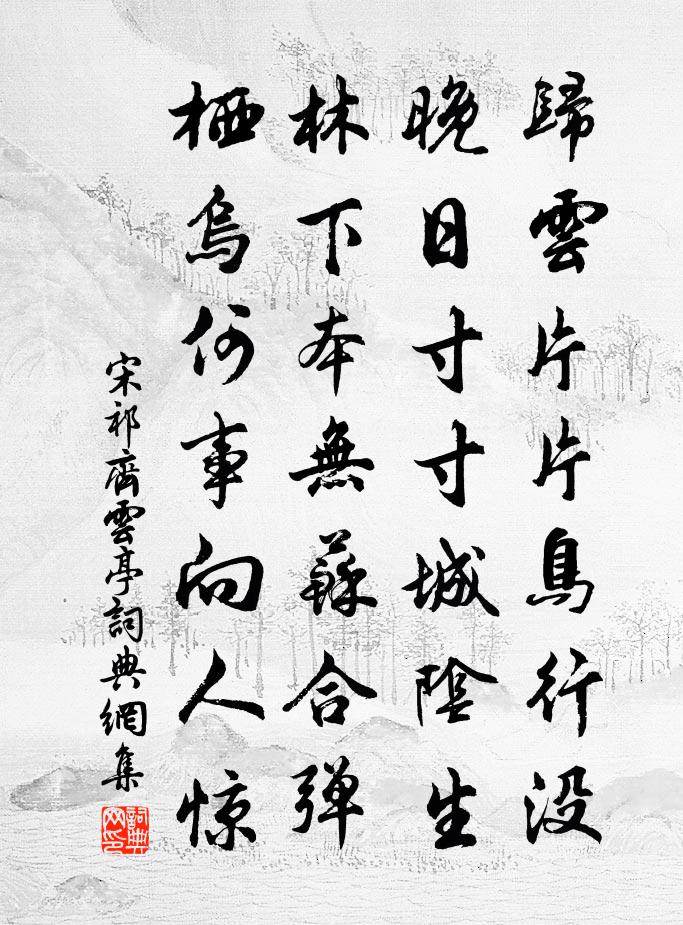 歸雲片片鳥行没
晚日寸寸城陰生
林下本無蘇合弹
栖烏何事向人惊
宋祁齊雲亭詞典網集
詞典网印